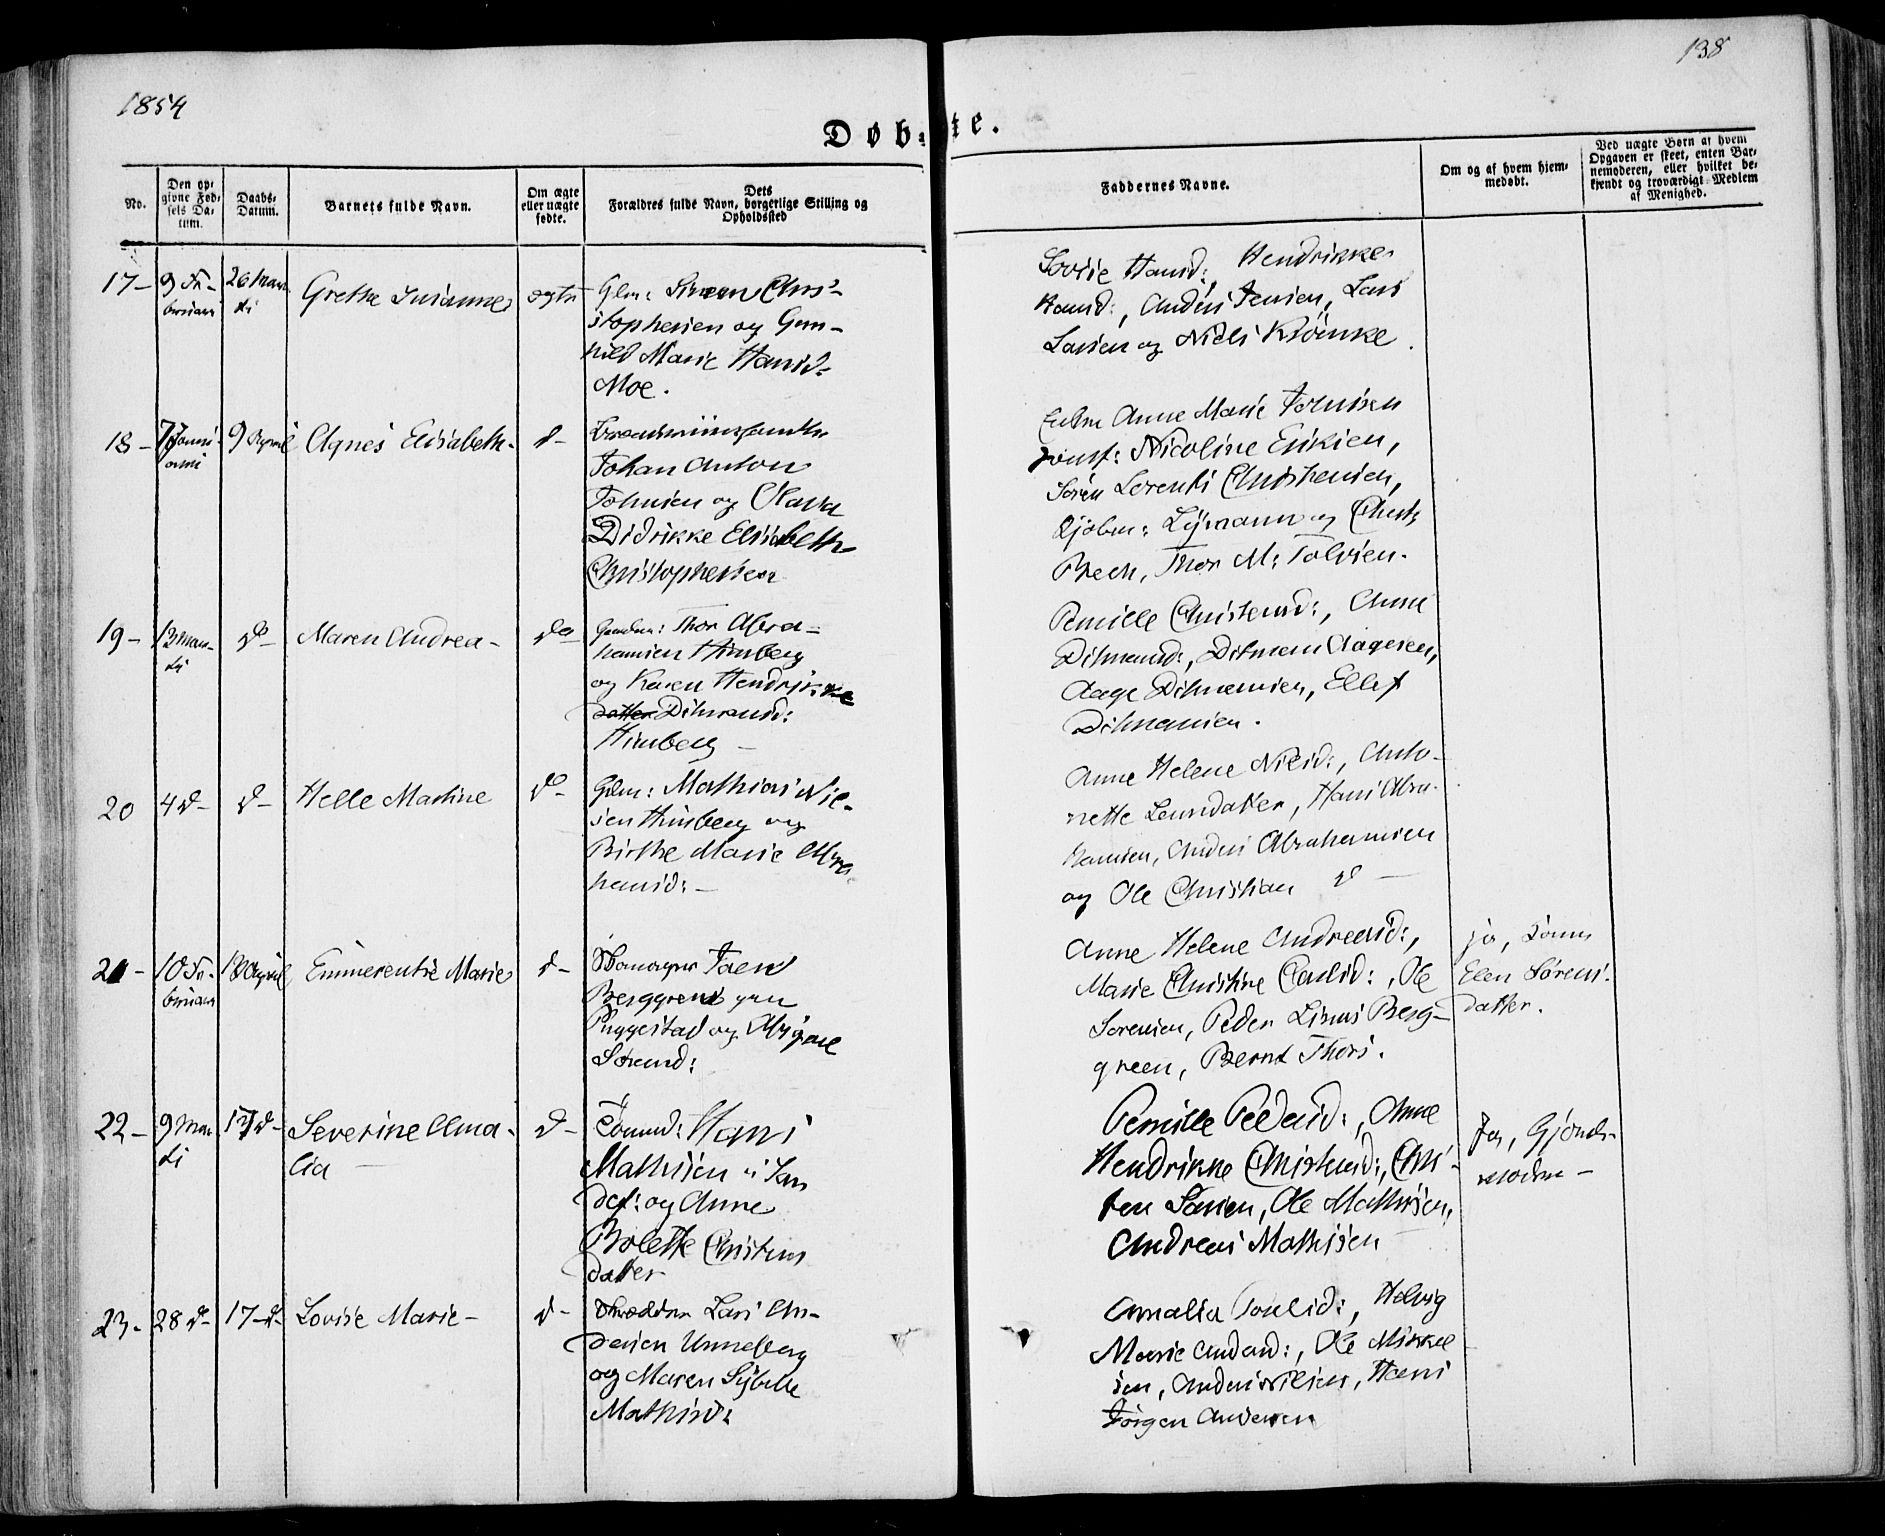 1854
138
Døb-te.
No.
Den op-
givne Fød-
sels Da-
tum.
Daabs-
Datum.
Barnets fulde Navn.
Om ægte
eller uægte
fødte.
Dets
Forældres fulde Navn, borgerlige Stilling og
Opholdssted
Faddernes Navne.
Om og af hvem hjem-
medøbt.
Ved uægte Børn af hvem
Opgaven er skeet, enten Bar-
nemoderen, eller hvilket be-
kjendt og troværdigt Medlem
af Menighed.
17-
9 Fe-
bruari
26 Mar-
ti
Grethe Susanne
ægte
Glm: Simen Chri-
stophersen og Gun-
hild Marie Hansd-
Moe.
Lovise Hansd:, Hendrikke
Hansd:, Anders Jensen, Lars
Larsen og Niels
18-
7 Janu-
arii
9 April
Agnes Elisabeth-
d-
Johan Anton
Johnsen og Olava
Didrikke Elisabeth
Christophersen
Anne Marie Johnsen
Jomf: Nicoline Eriksen,
Søren Lorents Christensen,
Kjøbm: og
Bech, Thor M:
19-
13 Mar-
ti
do-
Maren Andrea-
do
Gaardm: Thor Abra-
hamsen Himberg
og Karen Hendrikke
datter Ditmansd:
Himberg -
Pernille Christensd:, Anne
Ditmansd:, Ditman Aagesen,
Aage Ditmansen, Ellef
Ditmansen.
20
4 d-
d-
Helle Martine
do-
Glm: Mathias Nil-
sen Himberg og
Birthe Marie Abra
hamsd: -
Anne Helene Nilsd:, Anto-
nette Larsdatter, Hans Abra-
hamsen, Anders Abrahamsen
og Ole Christian d -
21-
10 Fe-
bruari
13 April
Emmerentse Marie
d-
Berggren
Puggestad og Abigael
Sørensd:
Anne Helene Andreasd:,
Marie Christine Carlsd:, Ole
Sørensen, Peder Linus Berg-
green, Bernt Thors.
ja,
Elen Sørens-
datter.
22-
9 Mar
ti
17 d-
Severine Ama-
lia -
d-
Tømmd: Hans
Mathisen i San
def: og Anne
Bolette Christens
datter
Pernille Pedersd:, Anne
Hendrikke Christensd:, Chri-
sten Larsen, Ole Mathisen,
Andreas Mathisen
Ja, Gjords-
moder -
23-
28 d-
17-d-
Lovise Marie-
d-
Lars An-
dersen Unneberg
og Maren Sybille
Mathisd:
Amalia Paulsd:, Helvig
Marie Andersd:, Ole Mikkel
sen, Anders Nilsen, Hans
Jørgen Andersen